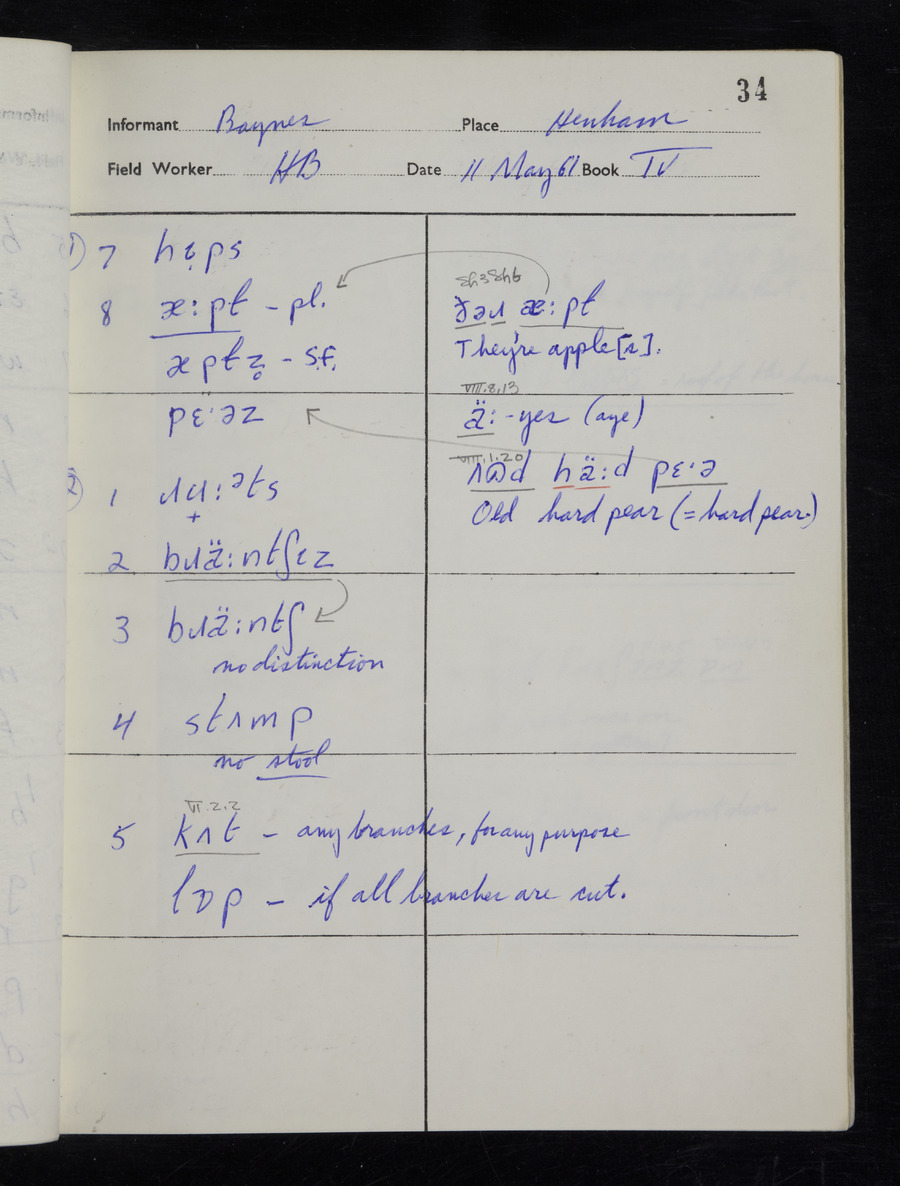 34
Informant Baynes Place Henham
Field Worker HB Date 11 May 61 Book IV
1) 7 hɩ̣ps
8 æ:pɫ - pl.
æpɫz̥ - s.f.
pɛ·əz
ðəɹ æ:pɫ
They're apple[z].
VIII.8.13
ä: - yes (aye)
VIII.1.20
hä:d pɛ·ə
Old hard pear (= hard pear.)
2) 1 ɹu̟:ᵊts
2 bɹä:ntʃɩz
3 bɹä:ntʃ
no distinction
4 stʌmp
no stool
VI.2.2
5 kʌt - any branches, for any purpose
lɒp - if all branches are cut.